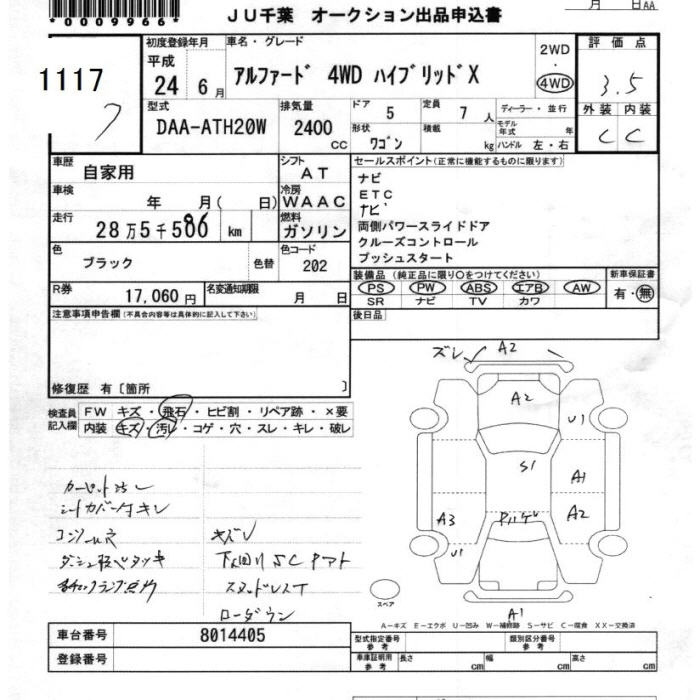 *0009966*
ＪＵ千葉 オークション出品申込書
月 日AA
1117
7
初度登録年月
平成
24 6月
車名・グレード
アルファード 4WD ハイブリッドX
2WD
・
4WD
評価点
3.5
外装 内装
C C
型式
DAA-ATH20W
排気量
2400
CC
ドア
5
定員
7 人
形状
ワゴン
積載
kg
ディーラー・並行
モデル年式 年
ハンドル 左・右
車歴
自家用
シフト
AT
車検
年 月( 日)
冷房
WAAC
走行
28万5千586 km
燃料
ガソリン
色
ブラック
色替
色コード
202
R券
17,060円
名変通知期限
月 日
セールスポイント(正常に機能するものに限ります)
ナビ
ETC
ナビ
両側パワースライドドア
クルーズコントロール
プッシュスタート
装備品(純正品に限り○をつけてください)
PS PW ABS エアB AW
SR ナビ TV カワ
新車保証書
有・無
後日品
注意事項申告欄(不具合内容等は具体的に記入して下さい)
修復歴 有〔箇所 〕
検査員記入欄
FW キズ・飛石・ヒビ割・リペア跡・×要
内装 キズ・汚レ・コゲ・穴・スレ・キレ・破レ
シートカバー付キレ
キズレ
下回りSC
ローダウン
ズレ
A2
A2
U1
S1
A1
A3
A2
U1
A1
スペア
A−キズ E−エクボ U−凹み W−補修跡 S−サビ C−腐食 XX−交換済
車台番号
8014405
登録番号
型式指定番号
参考
類別区分番号
参考
車庫証明用
参考
長さ cm
幅 cm
高さ cm